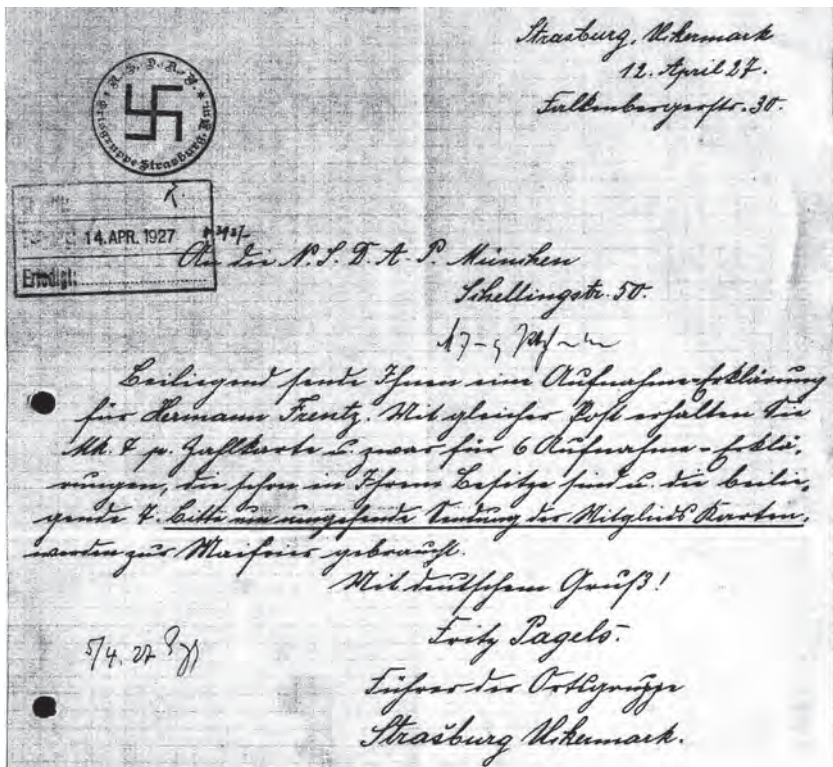 Strasburg, Uckermark
12. April 27.
Falkenbergerstr. 30.
N. S. D. A. P. * Ortsgruppe Strasburg, Um. *
14. APR. 1927
Erledigt:
An die N. S. D. A. P. München
Schellingstr. 50.
Beiliegend sende Ihnen eine Aufnahme-Erklärung
für Hermann Frentz. Mit gleicher Post erhalten Sie
Mk. 7 p. Zahlkarte u. zwar für 6 Aufnahme-Erklä-
rungen, die schon in Ihrem Besitze sind u. die beilie-
gende 7. Bitte um umgehende Sendung der Mitglieds Karten,
werden zur Maifeier gebraucht.
Mit deutschem Gruß!
Fritz Pagels.
Führer der Ortsgruppe
Strasburg Uckermark.